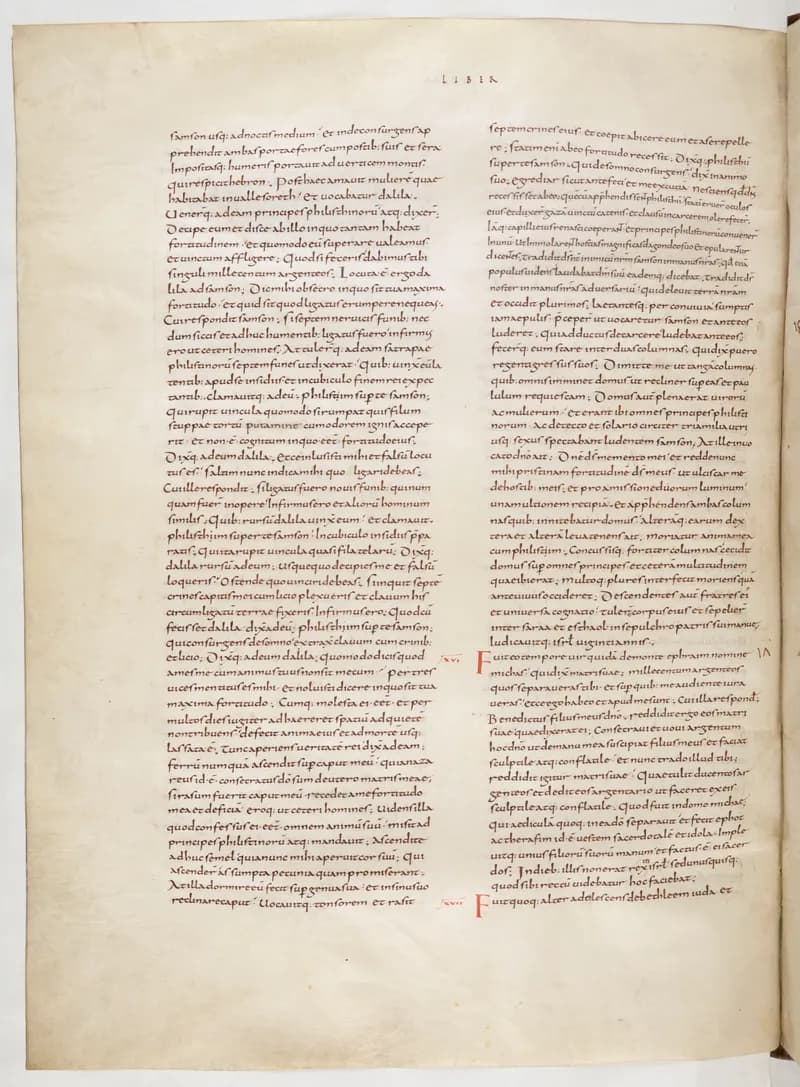 LIBER
samson usq; ad noctis medium. Et inde consurgens ap
prehendit ambas portae fores cum postib; suis et sera
Impositasq; humeris portauit ad uerticem montis
qui respicit hebron. Post haec amauit mulierē quae
habitabat in ualle soreth. et uocabatur dalila.
Venerq; ad eam principes philisthinorū atq; dixer̄;
Decipe eum et disce ab illo in quo tantam habeat
fortitudinem. et quomodo eū superare ualeamus
et uinctum affligere; Quod si feceris dabimus tibi
singuli mille centum argenteos; Locuta ē ergo da
lila ad samson; Dic mihi obsecro in quo sit tua maxima
fortitudo. et quid sit quo ligatus erumpere nequeas.
Cui respondit samson; si septem neruiceis funib; nec
dum siccis et adhuc humentib; ligatus fuero infirmus
ero ut ceteri homines; Attulerq; ad eam satrapae
philistinorū septem funes ut dixerat. Quib; uinxit eū la
tentib; apud se insidiis et in cubiculo finem rei expec
tantib; clamauitq; ad eū; philistiim sup te samson;
Qui rupit uincula quomodo si rumpat quis filum
stuppae tortū putamine cum odorem ignis accepe
rit. et non ē cognitum in quo eēt fortitudo eius;
Dixitq; ad eum dalila. ecce inlusisti mihi et falsū locu
tus es; saltim nunc indica mihi quo ligari debeas;
Cui ille respondit; si ligatus fuero nouis funib; qui num
quam fuer̄ in opere Infirmus ero et aliorū hominum
similis; Quib; rursū dalila uinxit eum. et clamauit.
philisthiim super te samson. In cubiculo insidiis p̄pa
ratis; Qui ita rupit uincula quasi fila telarū; Dixitq;
dalila rursū ad eum; Usquequo decipies me et falsū
loqueris. Ostende quo uinciri debeas; si inquit septē
crines capitis mei cum licio plexueris et clauum his
circumligatū terrae fixeris Infirmus ero; Quod cū
fecisset dalila. dixit ad eū; philisthiim sup te samson;
qui consurgens de somno extraxit clauum cum crinib;
et licio; Dixitq; ad eum dalila; quomodo dicis quod
ames me cum animus tuus non sit mecum. per tres
uices mentitus es mihi. et noluisti dicere in quo sit tua
maxima fortitudo; Cumq; molesta ei eēt. et per
multos dies iugiter adhaereret spatiū ad quietē
non tribuens. defecit anima eius et ad mortē usq;
lassata ē. Tunc aperiens ueritatē rei dixit ad eam;
ferrū numquā ascendit sup caput meū. quia naza
reus id ē consecratus dō sum de utero matris meae;
si rasum fuerit caput meū recedet a me fortitudo
mea et deficiā eroq; ut ceteri homines; Uidens illa
quod confessus ei eēt omnem animū suū. misit ad
principes philistinorū atq; mandauit; Ascendite
adhuc semel quia nunc mihi aperuit cor suū; Qui
ascender̄ assumpta pecunia quam promiserant.
At illa dormire eū fecit sup genua sua. et in sinu suo
reclinare caput. Uocauitq; tonsorem et rasit
septem crines eius. et coepit abicere eum et a se repelle
re; statim enī ab eo fortitudo recessit. Dixitq; philisthii
super te samson. Qui de somno consurgens dixit in animo
suo; egrediar sicut ante feci et me excutiā. nesciens qd dn̄s
recessisset ab eo;
eius et duxer̄ gazā uinctū catenis et clausū in carcere molere fecer̄;
Iāq; capilli eius renasci coeperant et principes philistinorū conuener̄
In unū. ut Immolarent hostias magnificas dagon deo suo et epularentur
dicentes; tradidit dn̄s inimicū nr̄m samson in manus nr̄as. qd etiā
populus uidens laudabat dm̄ suū eademq; dicebat; tradidit ds̄
noster in manus nr̄as aduersariū. qui deleuit terrā nr̄am
et occidit plurimos; laetantesq; per conuiuia sumptis
iam aepulis. p̄ceper̄ ut uocaretur samson et ante eos
luderet. Qui adductus de carcere ludebat ante eos;
fecerq; eum stare inter duas columnas. qui dixit puero
regenti gressus suos; Dimitte me ut tangā columnas
quib; omnis imminet domus ut recliner sup eas et pau
lulum requiescam; Domus aut̄ plena erat uirorū
ac mulierum. et erant ibi omnes principes philisti
norum. Ac de tecto et solario circiter tria milia utri
usq; sexus spectabant ludentem samson; At ille inuo
cato dn̄o ait; Dn̄e ds̄ memento mei et redde nunc
mihi pristinam fortitudinē ds̄ meus ut ulciscar me
de hostib; meis; et pro amissione duorum luminum
unam ultionem recipiā. et app̄hendens ambas colum
nas quib; innitebatur domus. Alterāq; earum dex
tera et alterā leua tenens ait; moriatur anima mea
cum philistiim; Concussisq; fortiter columnas cecidit
domus sup omnes principes et cetera multitudinem
quae ibi erat; multoq; plures interfecit moriens quā
ante uiuus occiderat; Descendentes aut̄ fratres ei
et uniuersa cognatio. tuler̄ corpus eius et sepelier̄
inter saraa et esthaol in sepulchro patris sui manue;
Iudicauitq; isrl̄ uiginti annis;
xvi. Fuit eo tempore uir quidā de monte ephraim nomine
michas. qui dixit matri suae; mille centum argenteos
quos separaueras tibi. et sup quib; me audiente iura
ueras; ecce ego habeo et apud me sunt; Cui illa respond̄;
Benedictus filius meus dn̄o; reddidit ergo eos matri
suae quae dixerat ei; Consecraui et uoui argentum
hoc dn̄o ut de manu mea suscipiat filius meus et faciat
sculptile atq; conflatile. et nunc trado illud tibi;
reddidit igitur matri suae. Quae tulit ducentos ar
genteos et dedit eos argentario ut faceret ex eis
sculptile atq; conflatile. quod fuit in domo michae;
qui aedicula quoq; in ea dō separauit et fecit ephot
ac theraphim id ē uestem sacerdotalē et idola. Imple
uitq; unius filiorū suorū manum. et factus ē ei sacer
dos; In dieb; illis non erat rex in isrl̄. sed unusquisq;
quod sibi rectū uidebatur hoc faciebat;
xvii. Fuit quoq; alter adolescens de bethleem iuda et